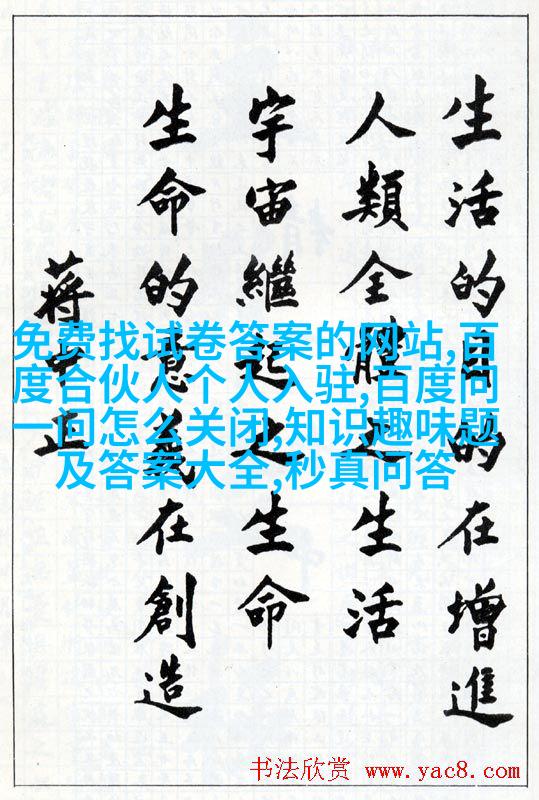 生活的目的在增進
人類全體之生活
宇宙繼起之生命
生命的意義在創造
蔣中正
免费找试卷答案的网站,百
度合伙人个人入驻,百度问
一问怎么关闭,知识趣味题
及答案大全,秒真问答
书法欣赏 www.yac8.com